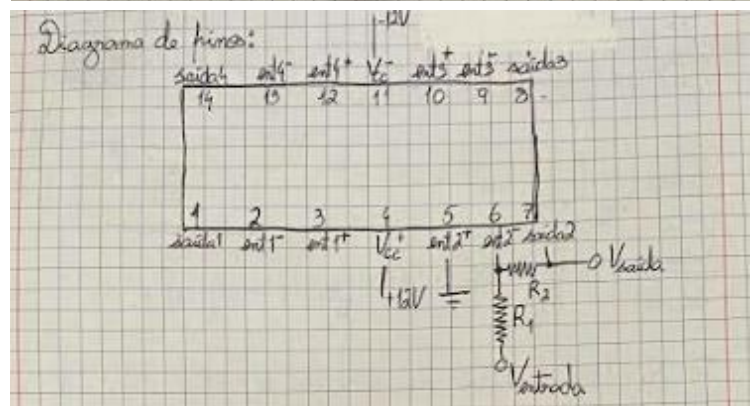 -12V
Diagrama de pinos:
saída4 ent4⁻ ent4⁺ Vcc⁻ ent3⁺ ent3⁻ saída3
14 13 12 11 10 9 8
1 2 3 4 5 6 7
saída1 ent1⁻ ent1⁺ Vcc⁺ ent2⁺ ent2⁻ saída2
Vsaída
+12V
R2
R1
Ventrada